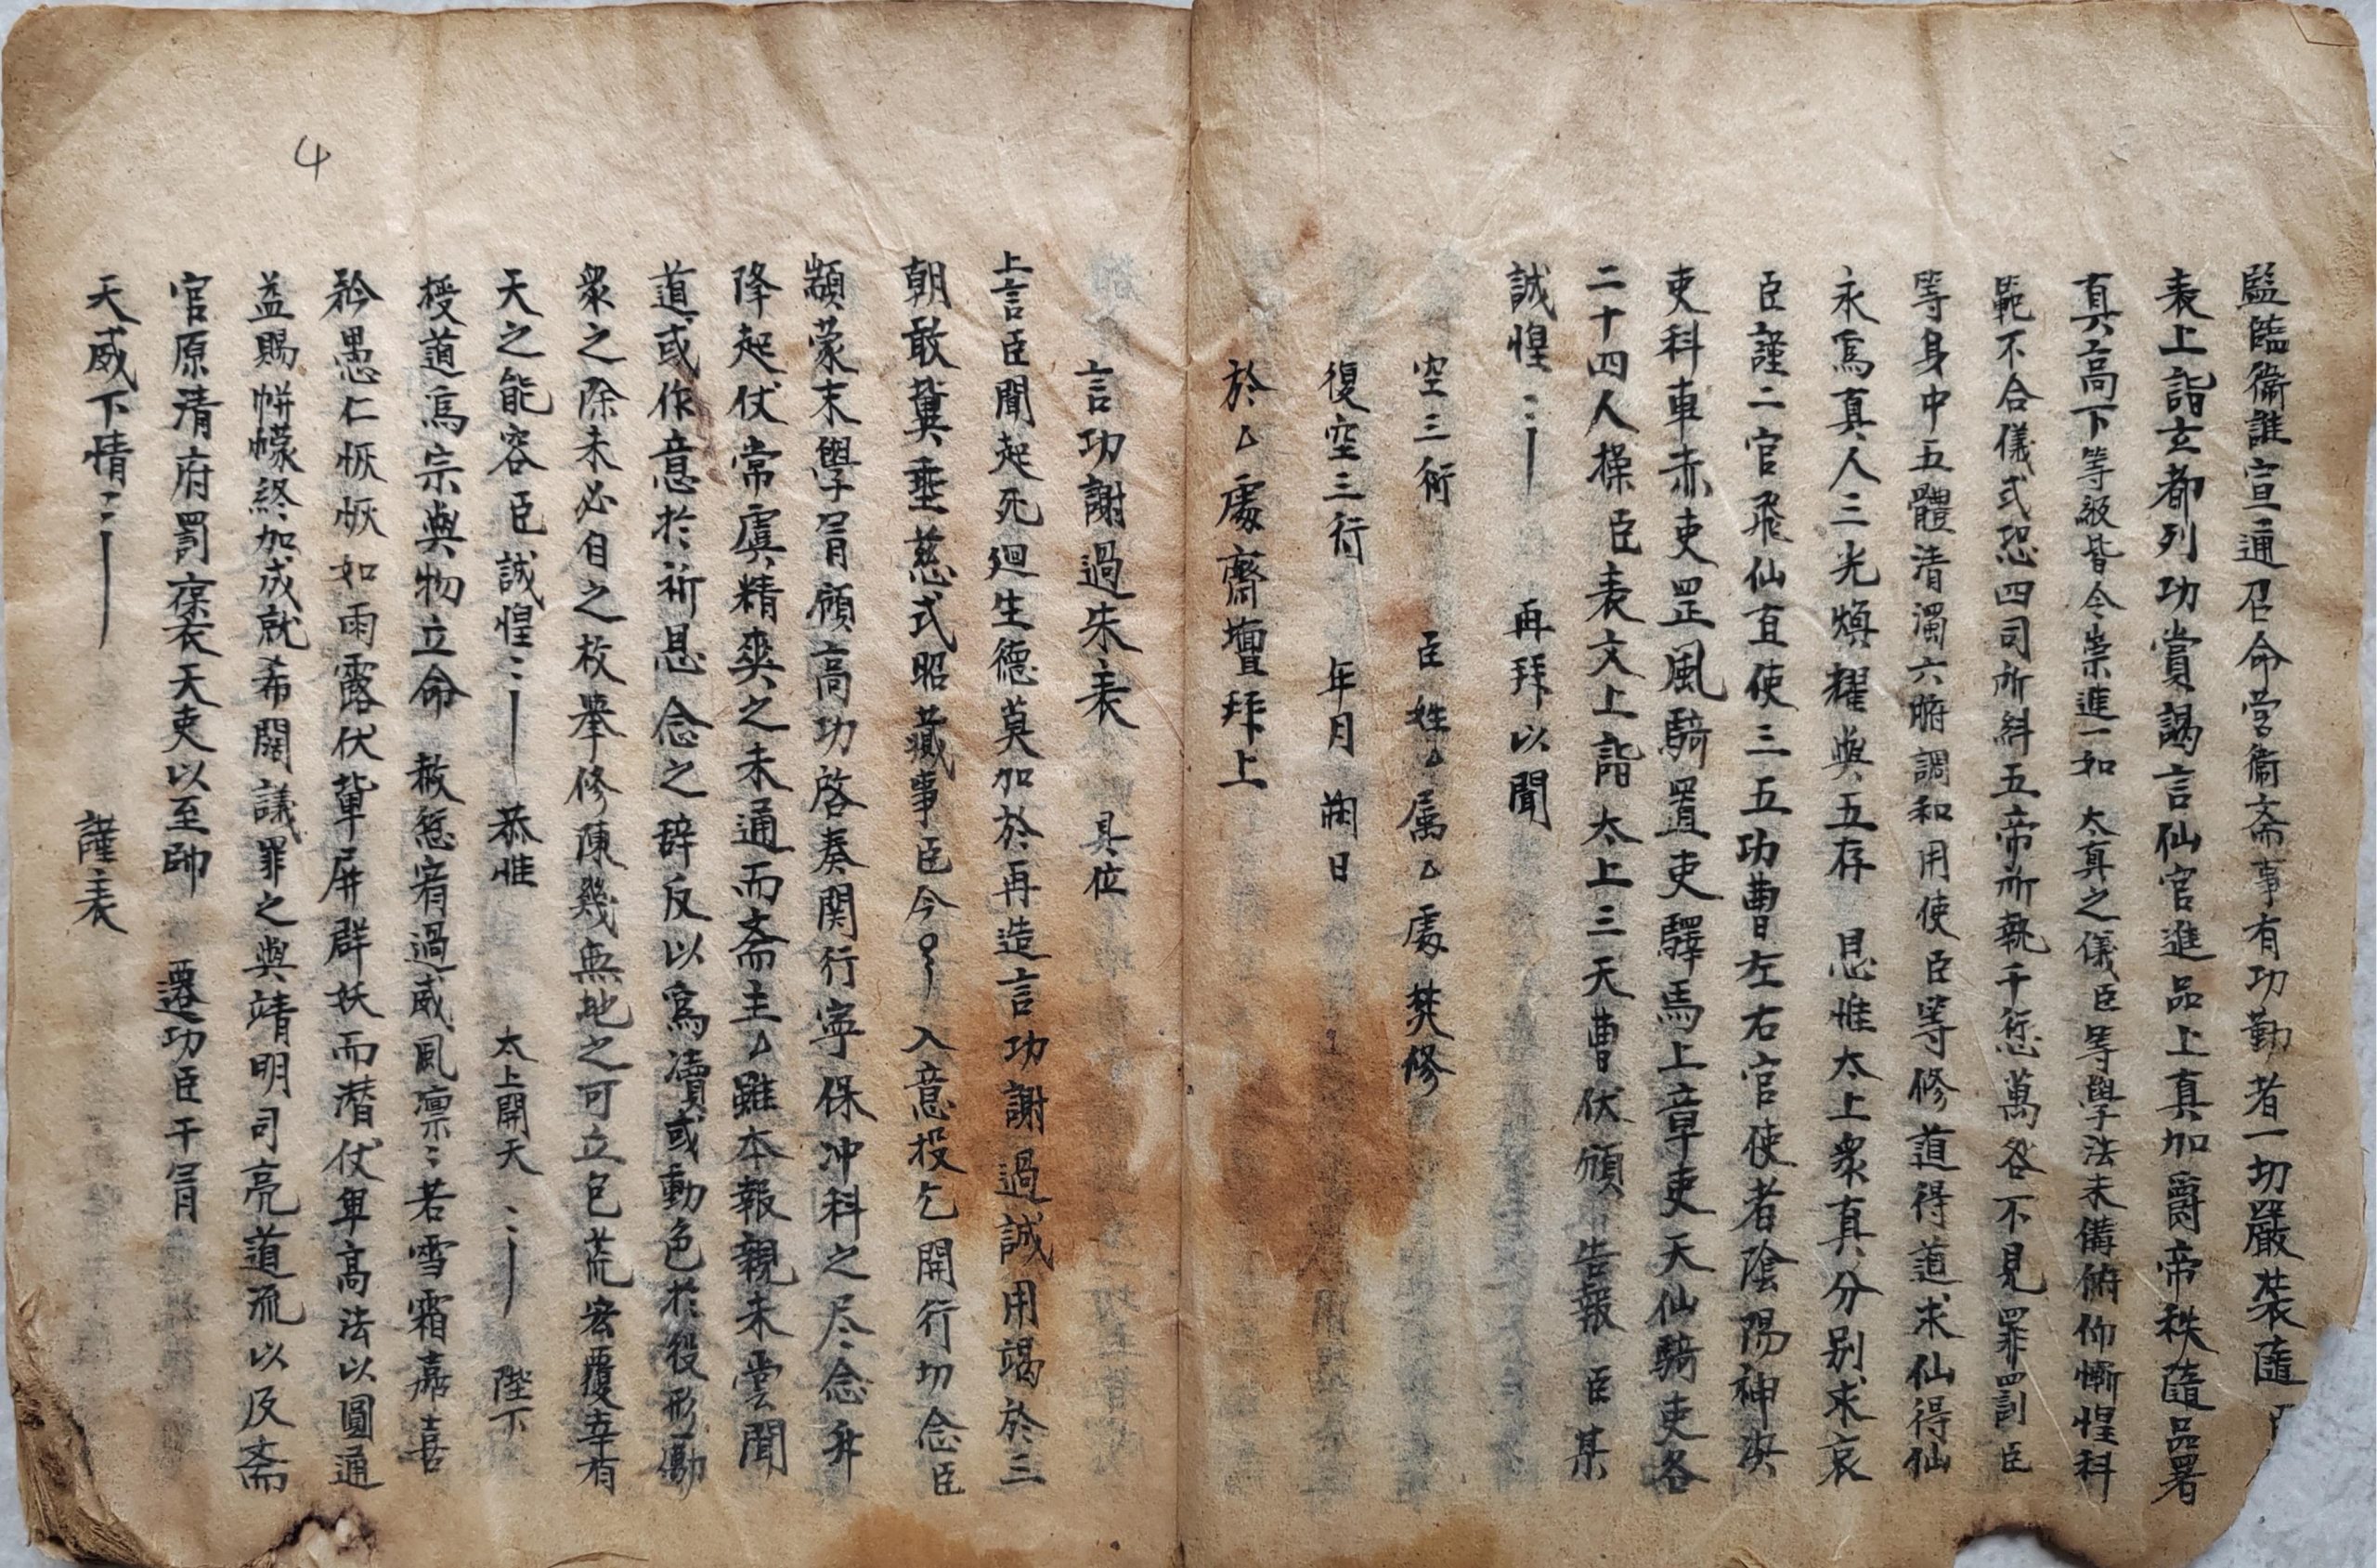 監臨衛誰宣通召命营衛斎事有功勤者一切嚴裝隨
表上詣玄都列功賞謁言仙官進品上真加爵帝秩隨品署
真高下等級皆令崇進一如太真之儀臣等學法未備俯仰慚惶科
範不合儀式恐四司所糾五帝所執千愆萬咎不見罪罰臣
等身中五體清濁六腑調和用使臣等修道得道求仙得仙
永爲真人三光煥耀與五存 恩惟太上衆真分别求哀
臣謹二官飛仙直使三五功曹左右官使者陰陽神决
吏科車赤吏罡風騎置吏驛馬上章吏天仙騎吏各
二十四人操臣表文上詣太上三天曹伏頋告報臣某
誠惶〻 再拜以聞
空三行 臣姓厶属厶處焚修
復空三行 年月 日
於厶處齋壇拜上
言功謝過朱表 具位
上言臣聞起死廻生德莫加於再造言功謝過誠用竭於三
朝敢冀垂慈式昭蕆事臣今 入意投乞開行切念臣
顓蒙末學冐頋高功啓奏関行寧保冲科之尽念升
降起伏常虞精爽之未通而斋主厶雖本報親未尝聞
道或作意於祈恩念之辞反以爲瀆或動色於役形勤
衆之除未必自之枚舉修陳幾無地之可立包荒宏覆幸有
天之能容臣誠惶〻 恭惟 太上開天〻 陛下
授道爲宗與物立命 赦愆宥過威風凛〻若雪霜嘉喜
矜愚仁恢恢如雨露伏輩屏群妖而潜伏卑高法以圓通
益賜帲幪終加成就希開議罪之與靖明司亮道流以及斋
官原清府罰葆衣天吏以至帥 遷功臣干冐
天威下情〻 謹表
4